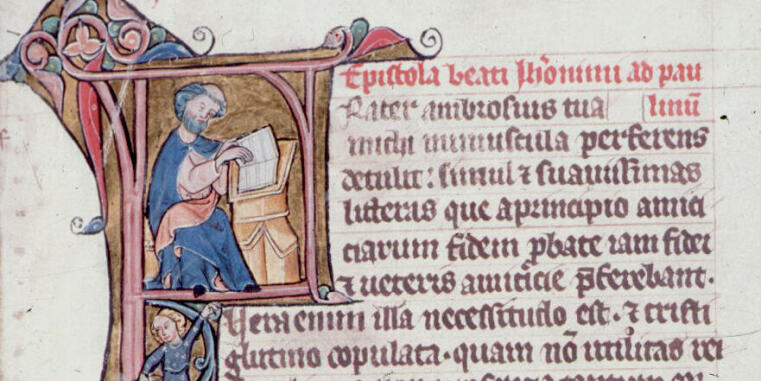 Epistola beati Jh̄onimi ad pau
linū
Rater ambrosius tua
michi munuscula perferens
detulit: simul ⁊ suauissimas
litteras que a principio amici
ciarum fidem ꝓbate iam fidei
⁊ ueteris amicicie p̄ferebant.
Vera enim illa necessitudo est. ⁊ cristi
glutino copulata. quam nō utilitas rei